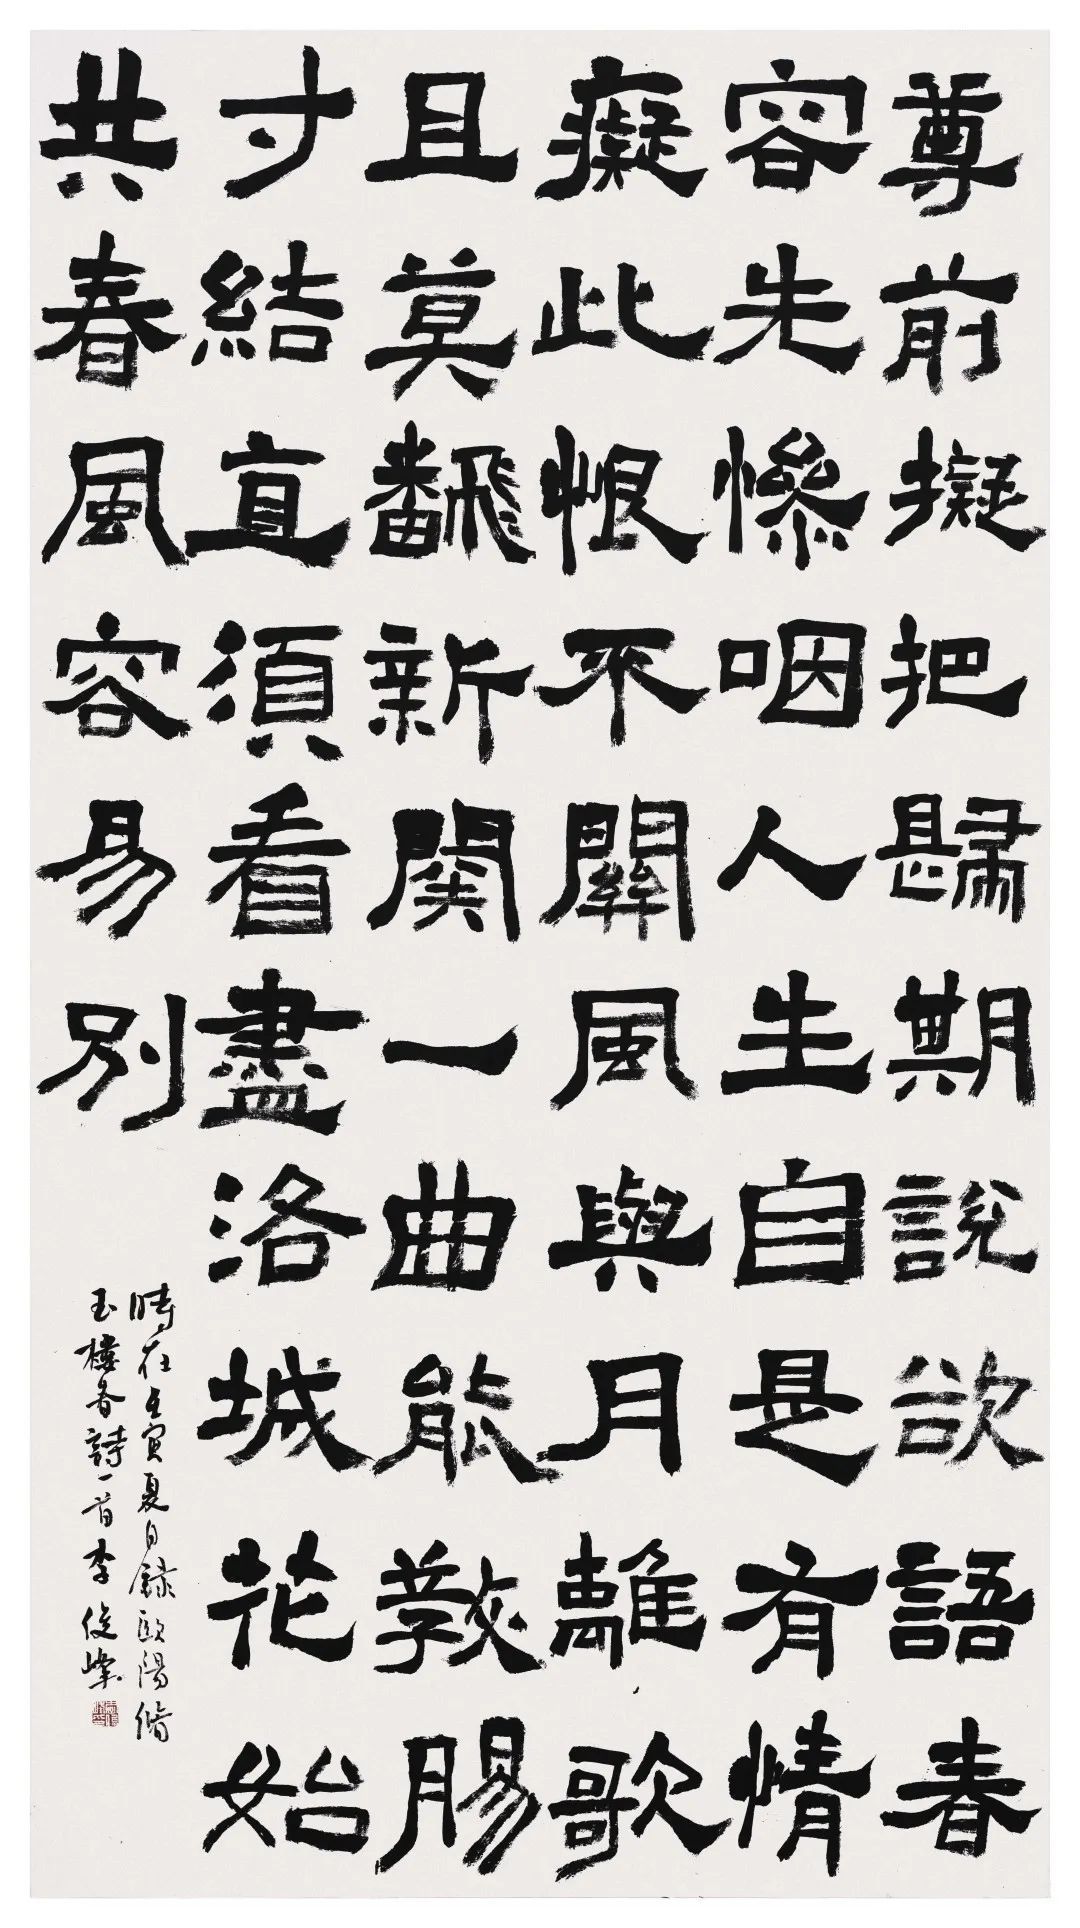 尊前擬把歸期說欲語春
容先慘咽人生自是有情
癡此恨不關風與月離歌
且莫飜新闋一曲能教腸
寸結直須看盡洛城花始
共春風容易別
時在壬寅夏日錄歐陽脩
玉樓春詩一首李俊峰